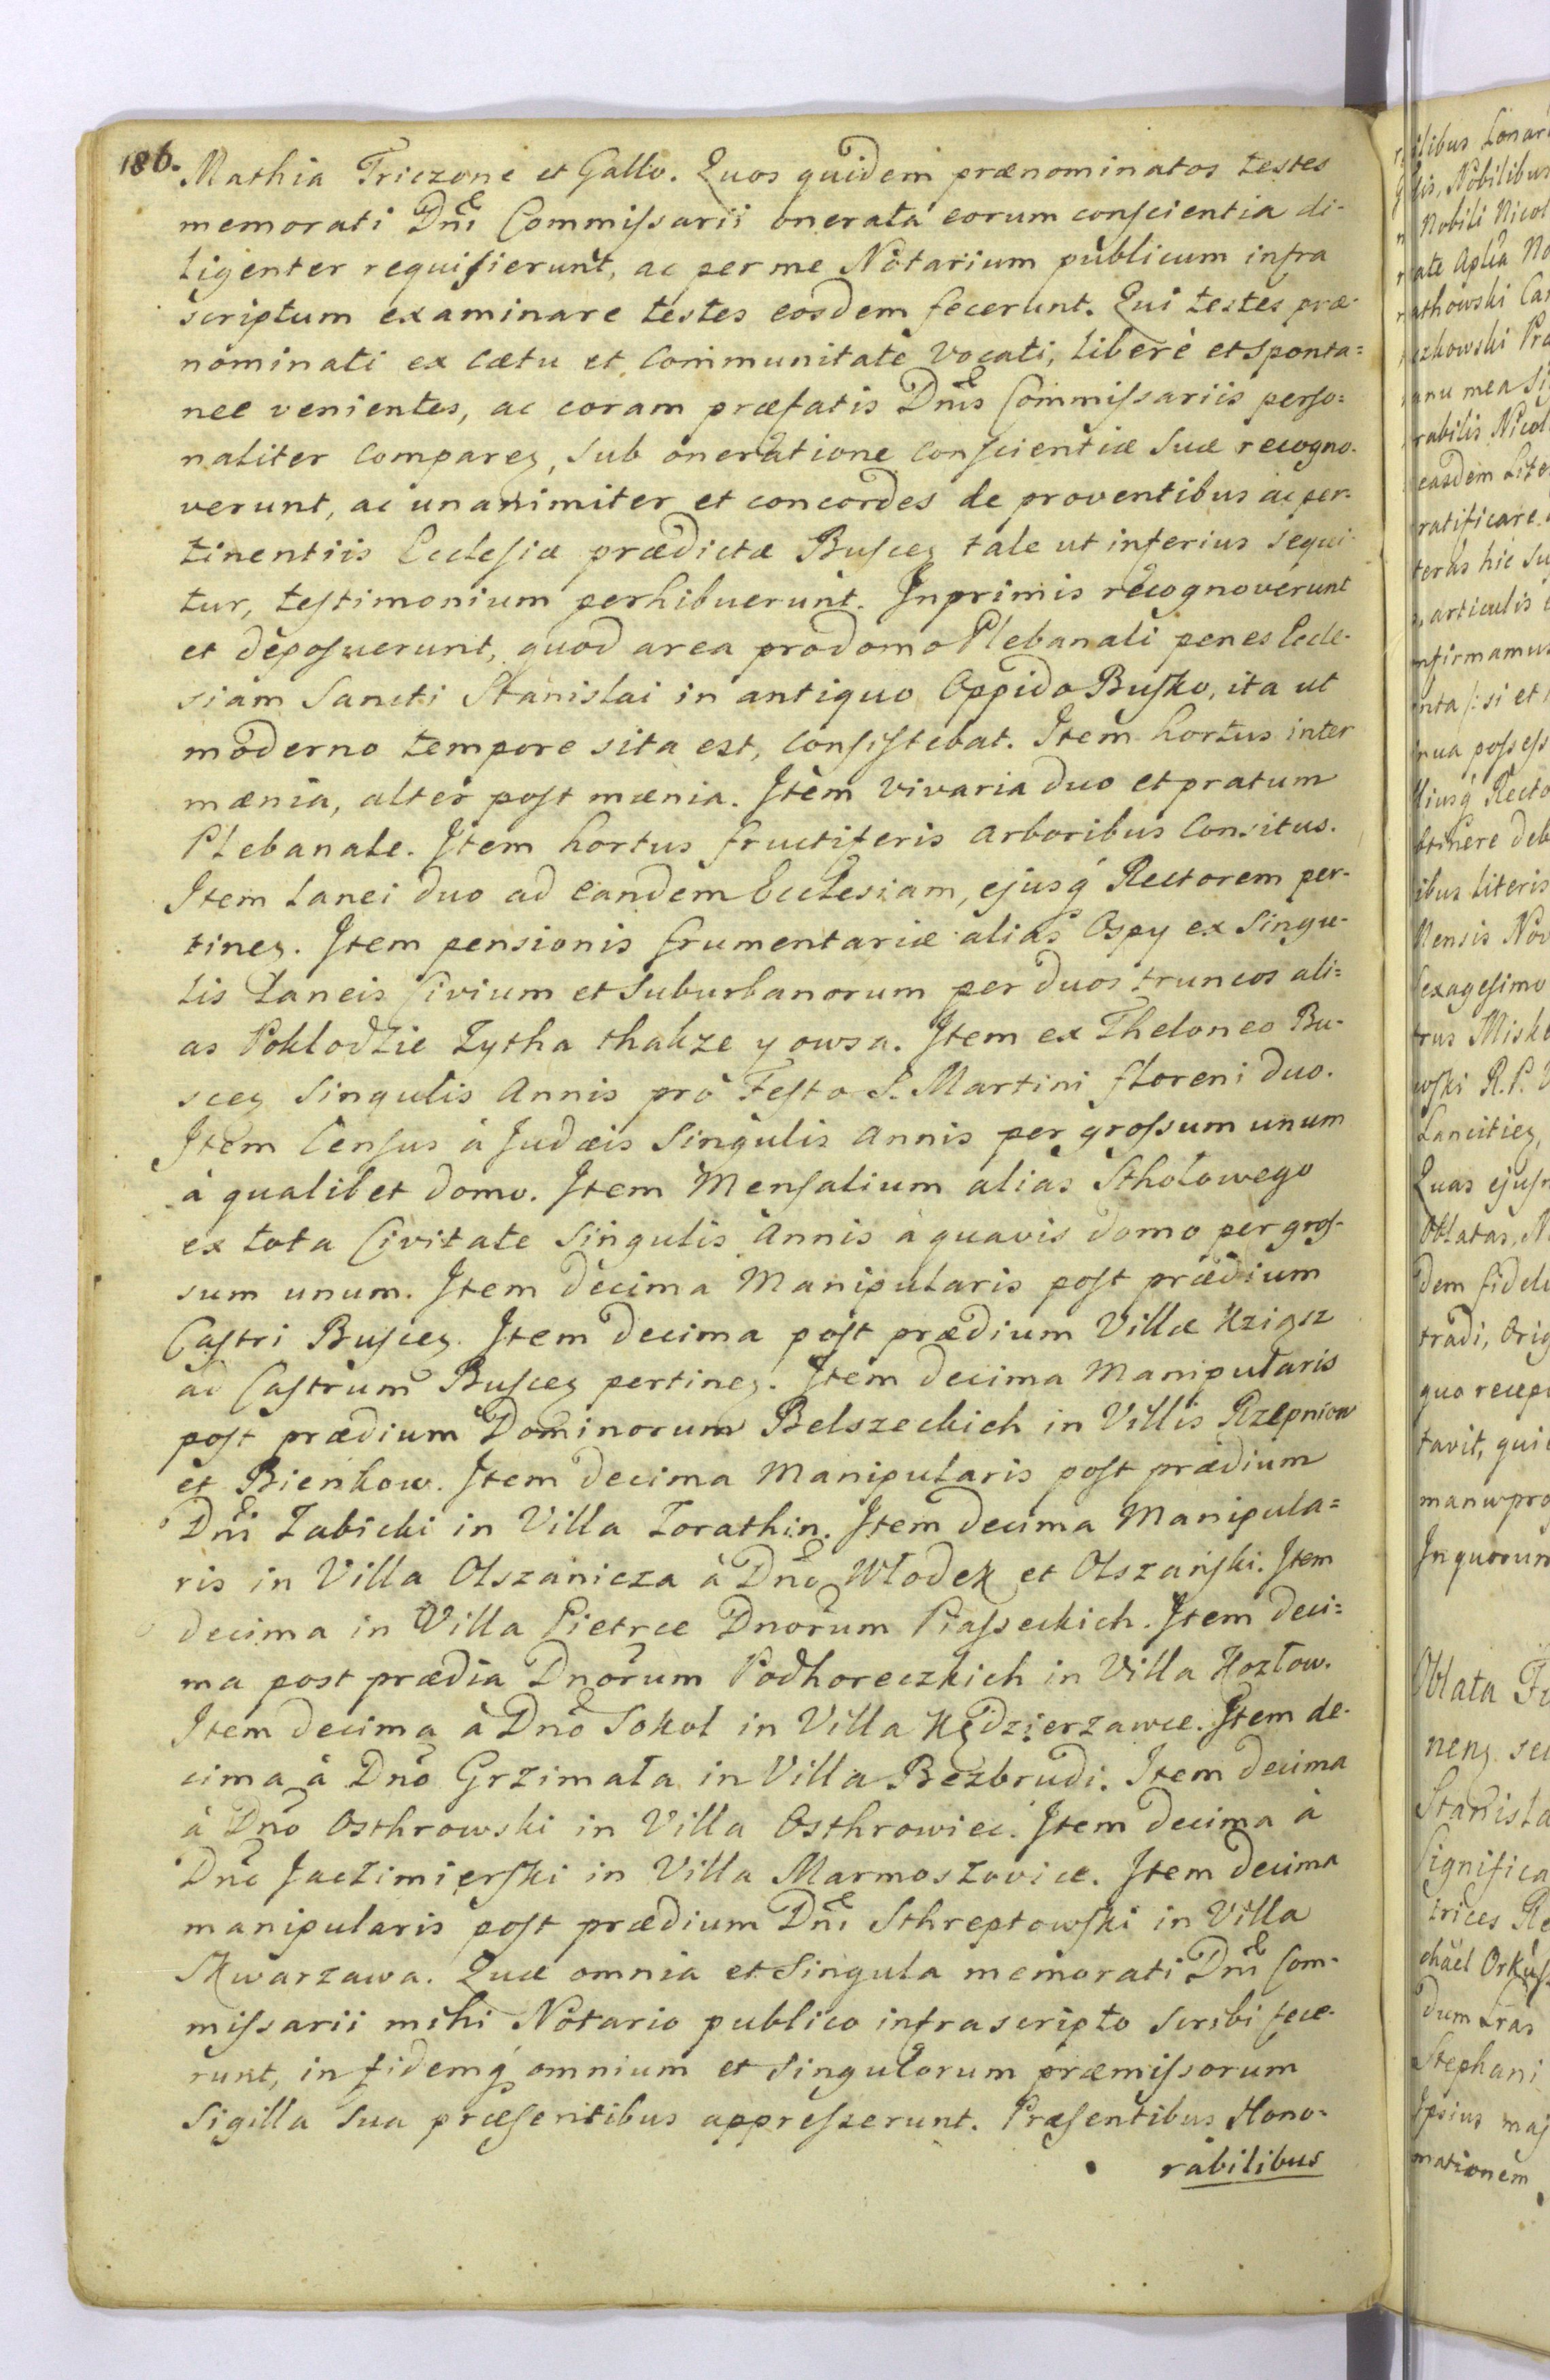 186.
Mathia Friczone et Gallo. Quos quidem prænominatos testes
memorati Dni Commissarii onerata eorum conscientia di-
ligenter requisierunt, ac per me Notarium publicum infra
scriptum examinare testes eosdem fecerunt. Qui testes præ-
nominati ex cætu et Communitate vocati, liberè et sponta=
nee venientes, ac coram præfatis Dnis Commissariis perso=
naliter Comparez, sub oneratione Conscientiæ suæ recogno-
verunt, ac unanimiter et concordes de proventibus ac per-
tinentiis Ecclesiæ prædictæ Buscez tale ut inferius sequi-
tur, testimonium perhibuerunt. Inprimis recognoverunt
et deposuerunt, quod area pro domo Plebanali penes Eccle-
siam Sancti Stanislai in antiquo Oppido Busko, ita ut
moderno tempore sita est, Consistebat. Item hortus inter
mænia, alter post mænia. Item vivaria duo et pratum
Plebanale. Item hortus fructiferis arboribus Consitus.
Item Lanei duo ad eandem Ecclesiam, ejusq́ Rectorem per-
tinez. Item pensionis frumentariæ alias Ospy ex Singu-
lis Laneis Civium et Suburbanorum per duos truncos ali=
as Poklodzie Zytha thakze y owsa. Item ex Theloneo Bu-
scez Singulis Annis pro Festo S. Martini floreni duo.
Item Census à Judæis Singulis Annis per grossum unum
à qualibet domo. Item Mensalium alias Stholowego
ex tota Civitate Singulis Annis à quavis domo per gros-
sum unum. Item decima Manipularis post prædium
Castri Buscez. Item decima post prædium Villæ Kziąsz
ad Castrum Buscez pertinez. Item decima Manipularis
post prædium Dominorum Belszeckich in Villis Rzepniow
et Bienkow. Item decima Manipularis post prædium
Dni Zabicki in Villa Torathin. Item decima Manipula=
ris in Villa Olszanicza à Dno Włodek et Olszański. Item
decima in Villa Pietrce Dnorum Piasseckich. Item deci=
ma post prædia Dnorum Podhoreczkich in Villa Kozłow.
Item decima à Dno Sokol in Villa Kędzierzawce. Item de-
cima à Dno Grzimała in Villa Bezbrudi. Item decima
à Dno Osthrowski in Villa Osthrowiec. Item decima à
Dno Jaczimierski in Villa Marmoszovice. Item decima
manipularis post prædium Dni Sthreptowski in Villa
Skwarzawa. Quæ omnia et Singula memorati Dni Com-
missarii mihi Notario publico infrascripto scribi fece-
runt, in fidemq́ omnium et Singulorum præmissorum
Sigilla Sua præsentibus appresserunt. Præsentibus Hono-
rabilibus